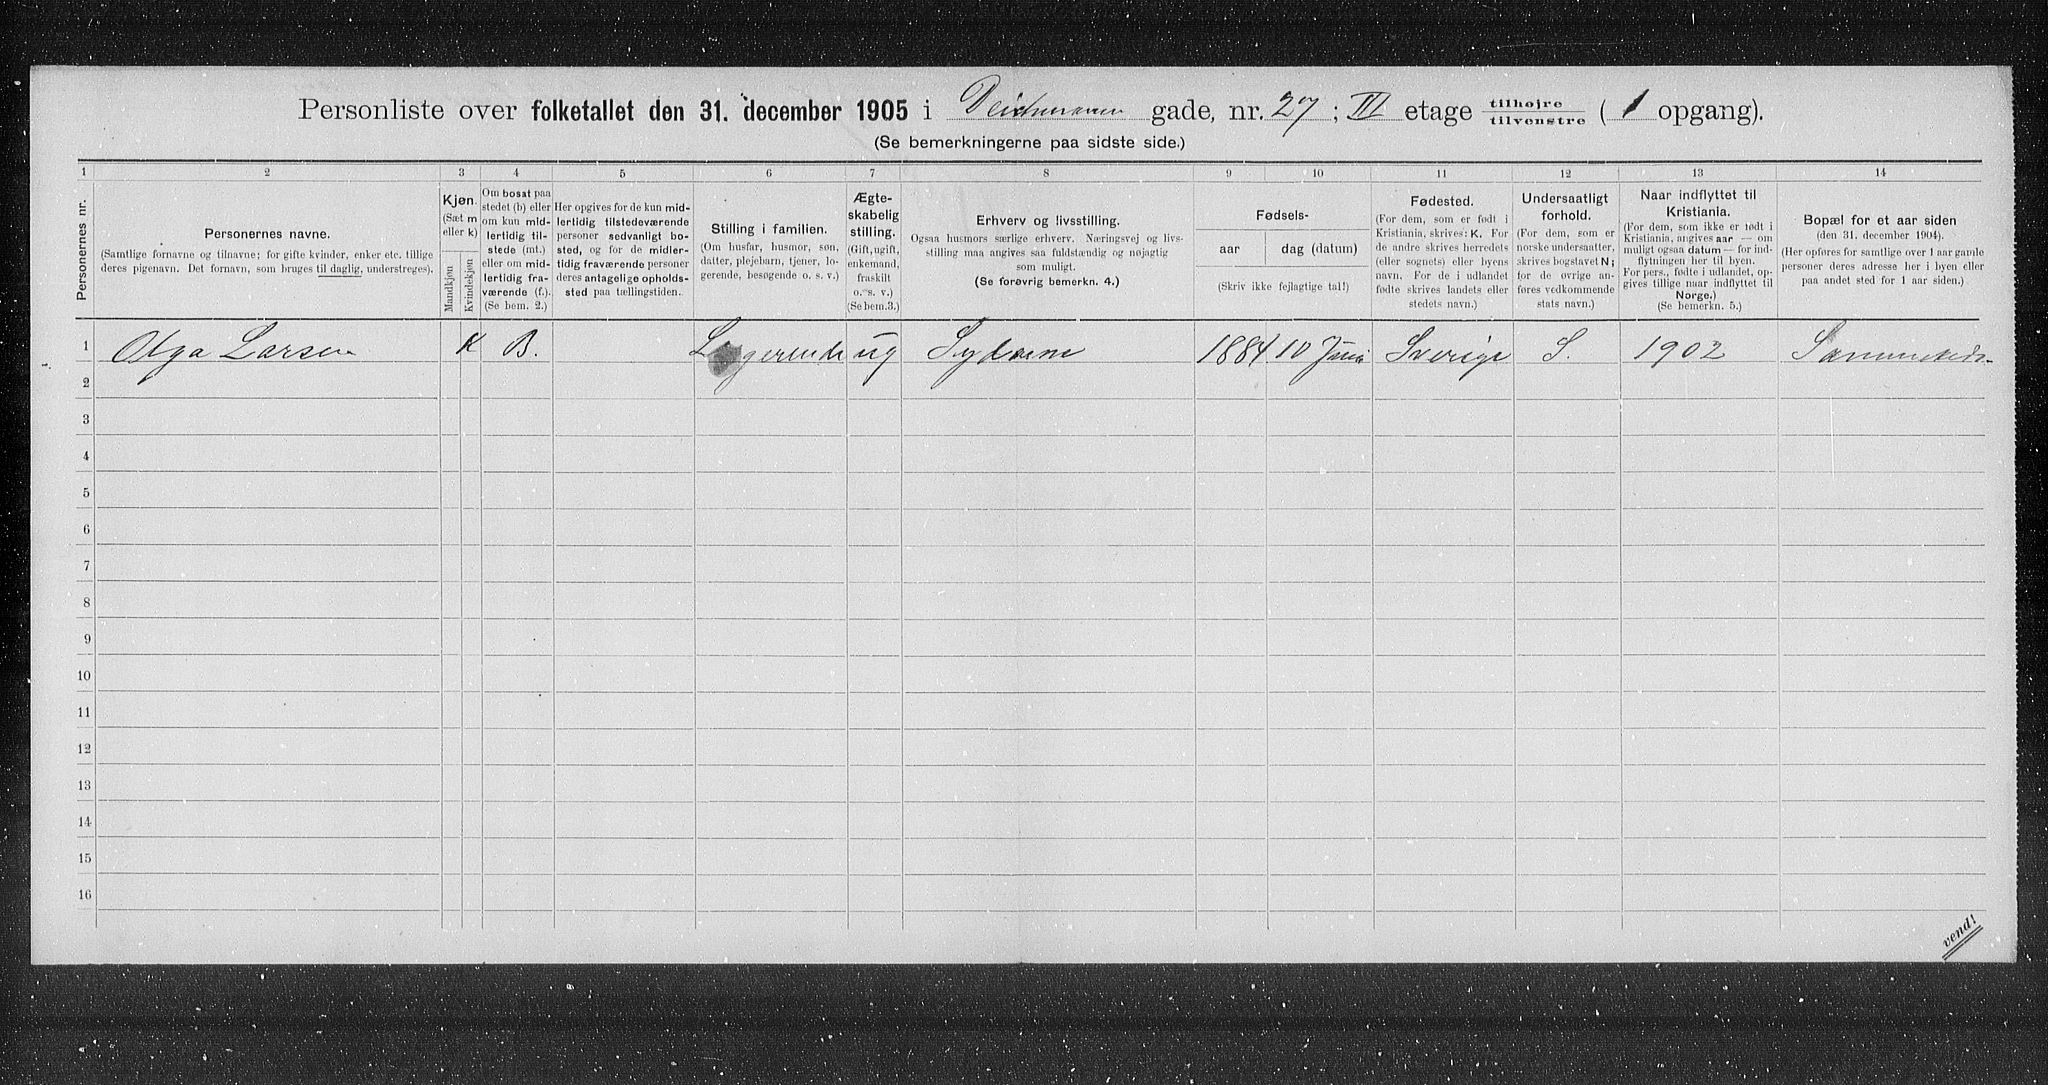 Personliste over folketallet den 31. december 1905 i Deichmanns gade, nr. 27; III etage tilhøjre tilvenstre (1 opgang).
(Se bemerkningerne paa sidste side.)
1 2 3 4 5 6 7 8 9 10 11 12 13 14
Personernes nr.
Personernes navne.
(Samtlige fornavne og tilnavne; for gifte kvinder, enker etc. tillige deres pigenavn. Det fornavn, som bruges til daglig, understreges).
Kjøn.
(Sæt m eller k)
Mandkjøn
Kvindekjøn
Om bosat paa stedet (b) eller om kun midlertidig tilstede (mt.) eller om midlertidig fraværende (f.). (Se bem. 2.)
Her opgives for de kun midlertidig tilstedeværende personer sedvanligt bosted, og for de midlertidig fraværende personer deres antagelige opholdssted paa tællingstiden.
Stilling i familien.
(Om husfar, husmor, søn, datter, plejebarn, tjener, logerende, besøgende o. s. v.)
Ægteskabelig stilling.
(Gift, ugift, enkemand, fraskilt o. s. v.)
(Se bem. 3.)
Erhverv og livsstilling.
Ogsaa husmors særlige erhverv. Næringsvej og livsstilling maa angives saa fuldstændig og nøjagtig som muligt.
(Se forøvrig bemerkn. 4.)
Fødsels-
aar
dag (datum)
(Skriv ikke fejlagtige tal!)
Fødested.
(For dem, som er født i Kristiania, skrives: K. For de andre skrives herredets (eller sognets) eller byens navn. For de i udlandet fødte skrives landets eller stedets navn.)
Undersaatligt forhold.
(For dem, som er norske undersaatter, skrives bogstavet N; for de øvrige anføres vedkommende stats navn.)
Naar indflyttet til Kristiania.
(For dem, som ikke er født i Kristiania, angives aar — om muligt ogsaa datum — for indflytningen her til byen. For pers., fødte i udlandet, opgives tillige naar indflyttet til Norge.)
(Se bemerkn. 5.)
Bopæl for et aar siden
(den 31. december 1904).
(Her opføres for samtlige over 1 aar gamle personer deres adresse her i byen eller paa andet sted for 1 aar siden.)
1 Olga Larsen K B. Logerende ug Sydame 1884 10 Juni Sverige S. 1902 Sammesteds
2
3
4
5
6
7
8
9
10
11
12
13
14
15
16
vend!